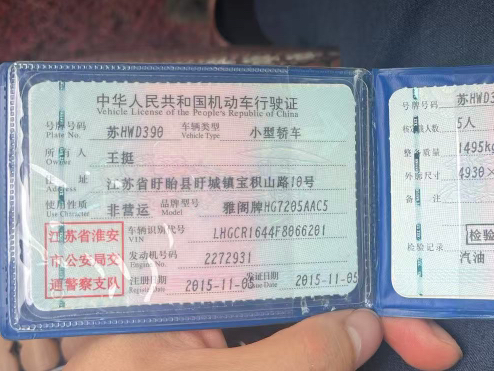 中华人民共和国机动车行驶证
Vehicle License of the People's Republic of China
号牌号码 苏HWD390 车辆类型 小型轿车
Plate No. Vehicle Type
所有人 王挺
Owner
住址 江苏省盱眙县盱城镇宝积山路18号
Address
使用性质 非营运 品牌型号 雅阁牌HG7205AAC5
Use Character Model
江苏省淮安
市公安局交
通警察支队
车辆识别代号 LHGCR1644F8066201
VIN
发动机号码 2272931
Engine No.
注册日期 2015-11-05 发证日期 2015-11-05
Register Date Issue Date
号牌号码 苏HWD
核定载人数 5人
整备质量 1495kg
外廓尺寸 4930×
备注
检验
检验记录
汽油